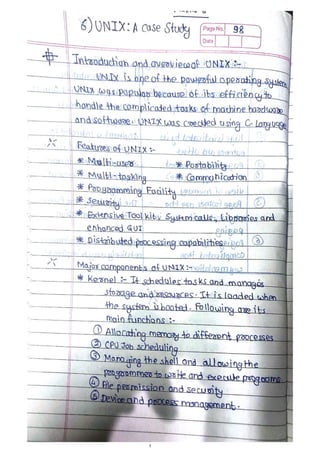 6) UNIX: A Case Study
Page No. 98
Date
Introduction and overview of UNIX :-
UNIX is one of the powerful operating system
UNIX was popular because of its efficiency to
handle the complicated tasks of machine hardware
and software. UNIX was created using C- Language
Features of UNIX :-
* Multi-user * Portability
* Multi-tasking * Communication
* Programming Facility
* Security
* Extensive Tool kits, System calls, Libraries and
enhanced GUI
* Distributed processing capabilities
Major components of UNIX:-
* Kernel :- It schedules tasks and manages
storage and resources. It is loaded when
the system is booted. Following are its
main functions :-
① Allocating memory to different processes
② CPU Job scheduling
③ Managing the shell and allowing the
programmer to write and execute programs
④ File permission and security
⑤ Device and process management.